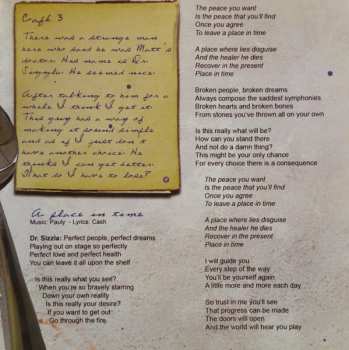 Craft 3
There was a strange man
here who said he was Matt's
doctor. His name is Dr.
Sizzla. He seemed nice.
After talking to him for a
while I think I get it.
This guy had a way of
making it sound simple
and as if I just don't
have another choice. He
thinks I can get better.
What do I have to lose?
A place in time
Music: Pauly - Lyrics: Cash
Dr. Sizzla: Perfect people, perfect dreams
Playing out on stage so perfectly
Perfect love and perfect health
You can leave it all upon the shelf
Is this really what you see?
When you're so bravely starring
Down your own reality
Is this really your desire?
If you want to get out
Go through the fire
The peace you want
Is the peace that you'll find
Once you agree
To leave a place in time
A place where lies disguise
And the healer he dies
Recover in the present
Place in time
Broken people, broken dreams
Always compose the saddest symphonies
Broken hearts and broken bones
From stones you've thrown all on your own
Is this really what will be?
How can you stand there
And not do a damn thing?
This might be your only chance
For every choice there is a consequence
The peace you want
Is the peace that you'll find
Once you agree
To leave a place in time
A place where lies disguise
And the healer he dies
Recover in the present
Place in time
I will guide you
Every step of the way
You'll be yourself again
A little more and more each day
So trust in me you'll see
That progress can be made
The doors will open
And the world will hear you play